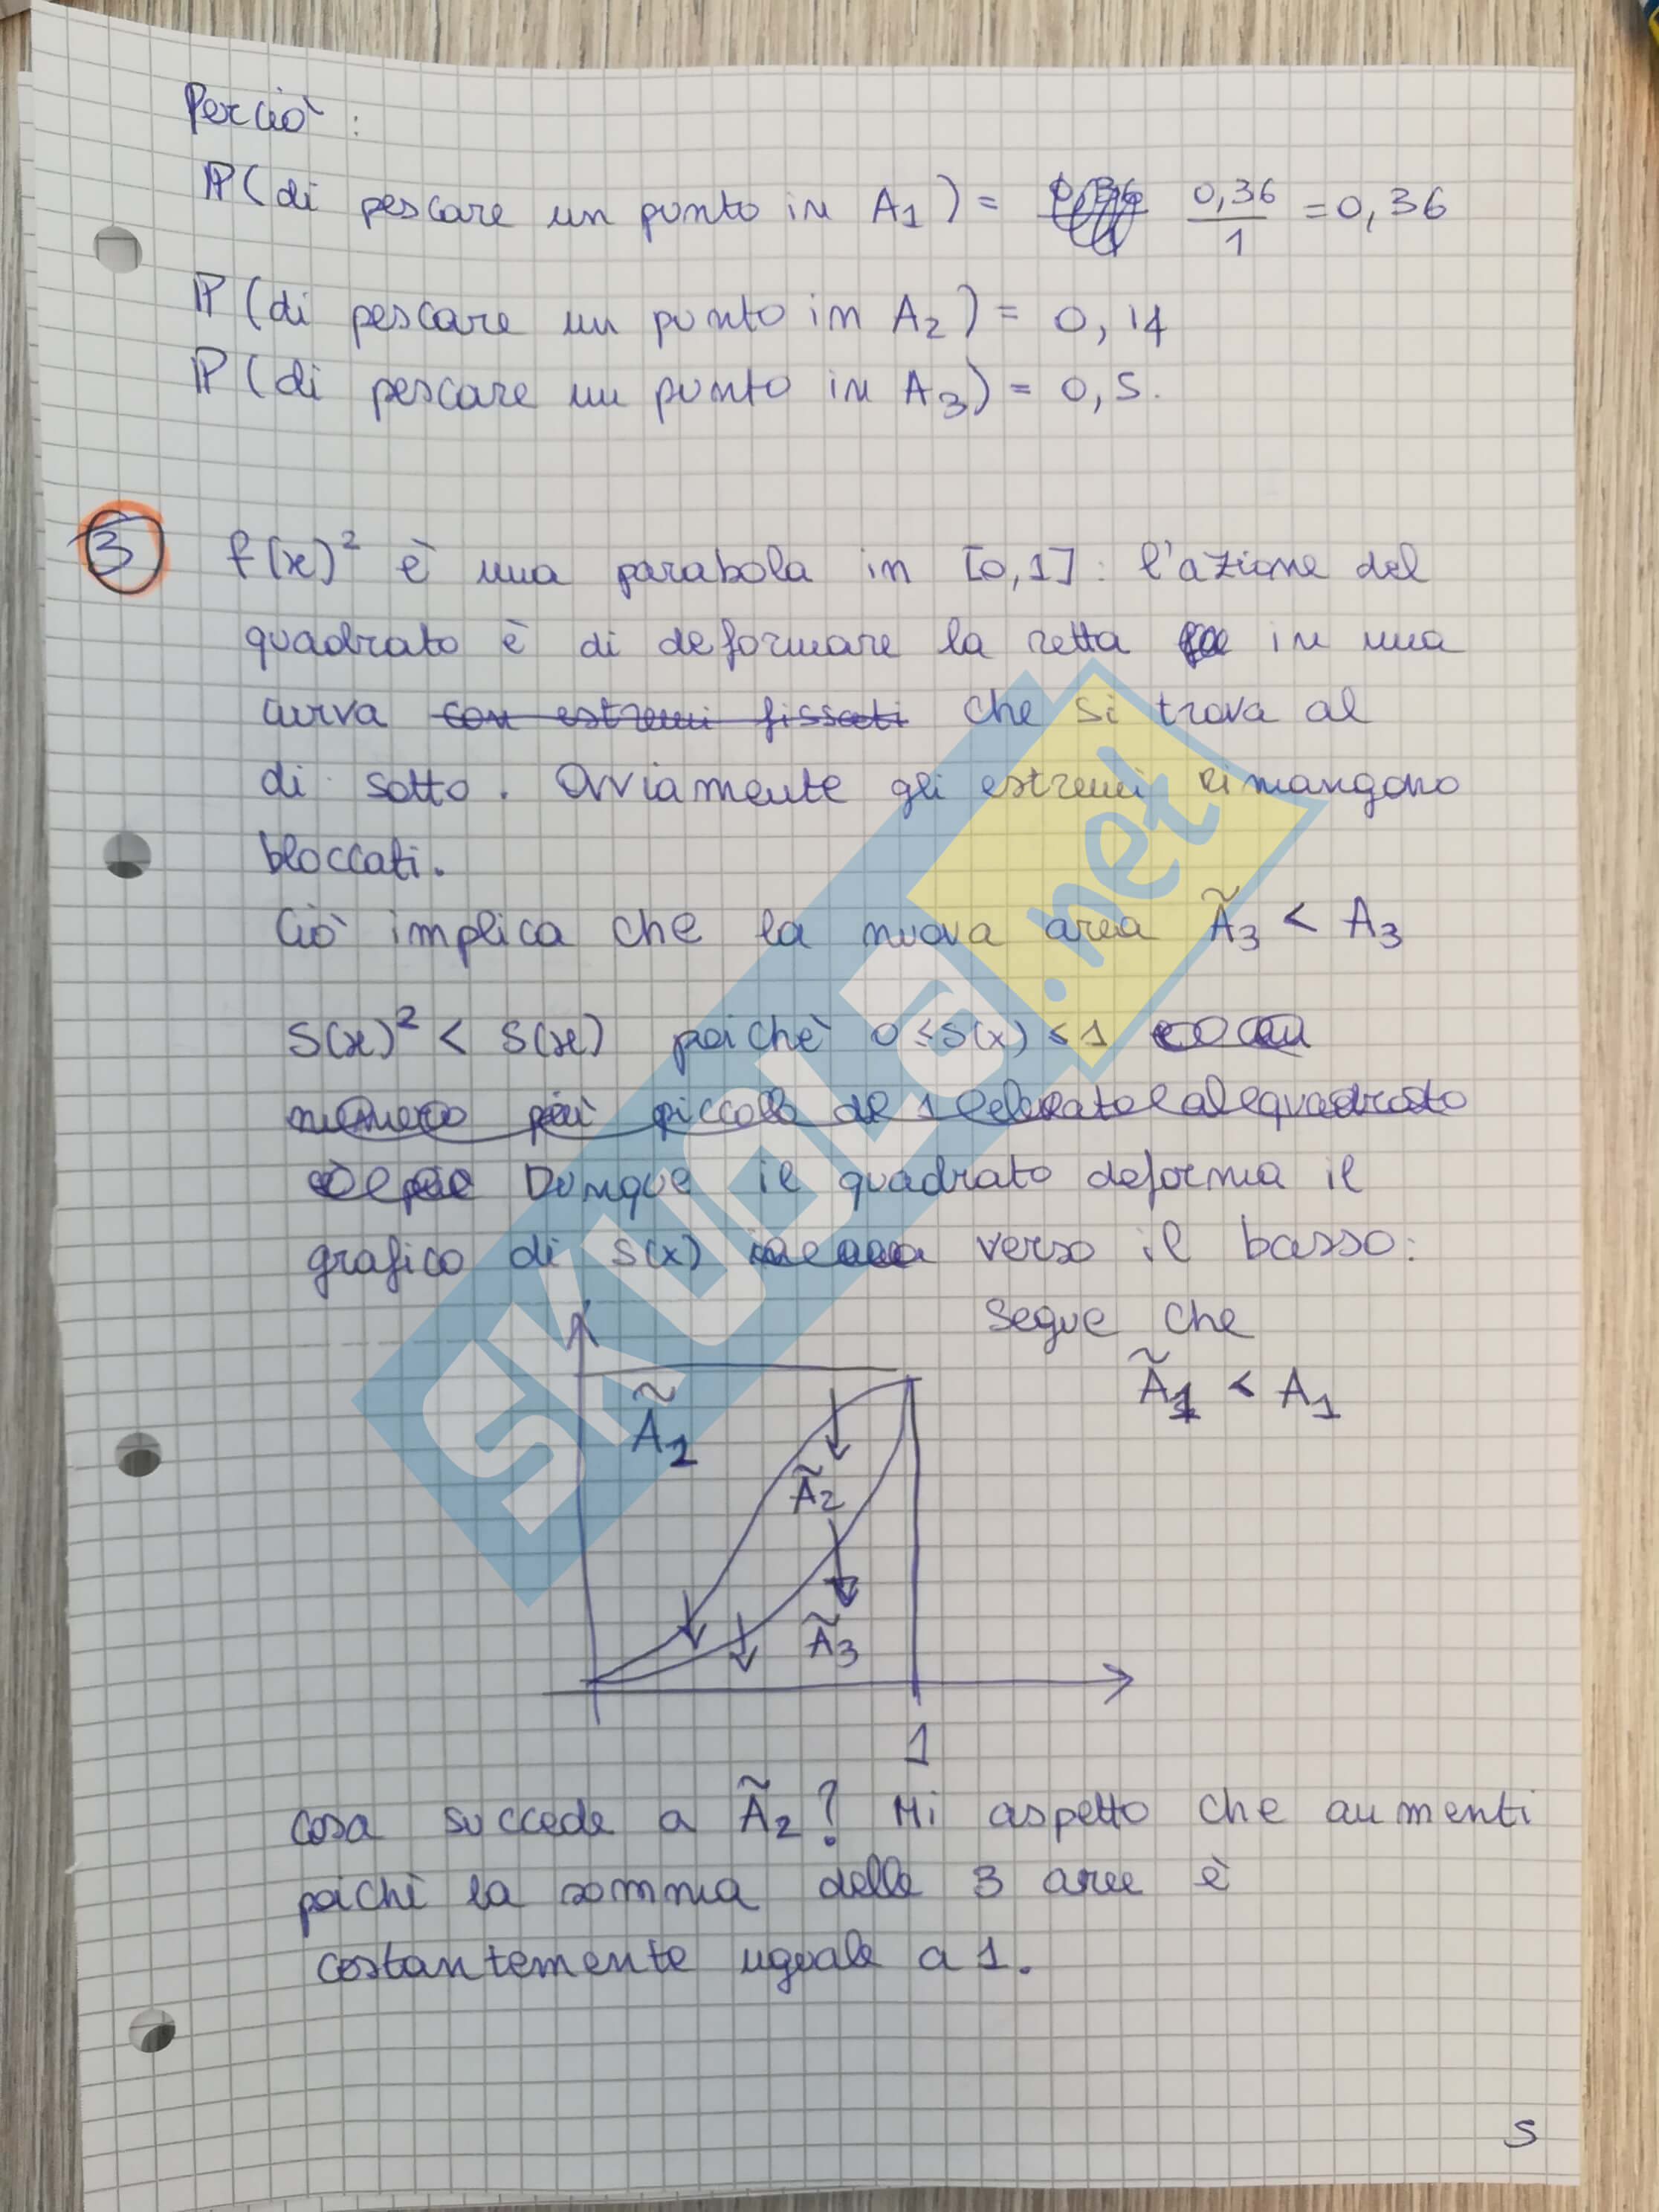 Perciò:
P(di pescare un punto in A1) = 0,36/1 = 0,36
P(di pescare un punto in A2) = 0,14
P(di pescare un punto in A3) = 0,5.
3 f(x)² è una parabola in [0,1]: l'azione del
quadrato è di deformare la retta in una
curva con estremi fissati che si trova al
di sotto. Ovviamente gli estremi rimangono
bloccati.
Ciò implica che la nuova area Ã3 < A3
S(x)² < S(x) poichè 0≤S(x)≤1
numero più piccolo di 1 elevato al quadrato
Dunque il quadrato deforma il
grafico di S(x) verso il basso:
Segue che
Ã1 < A1
Ã1
Ã2
Ã3
1
Cosa succede a Ã2? Mi aspetto che aumenti
poichè la somma delle 3 aree è
costantemente uguale a 1.
5
SKUOLA.net